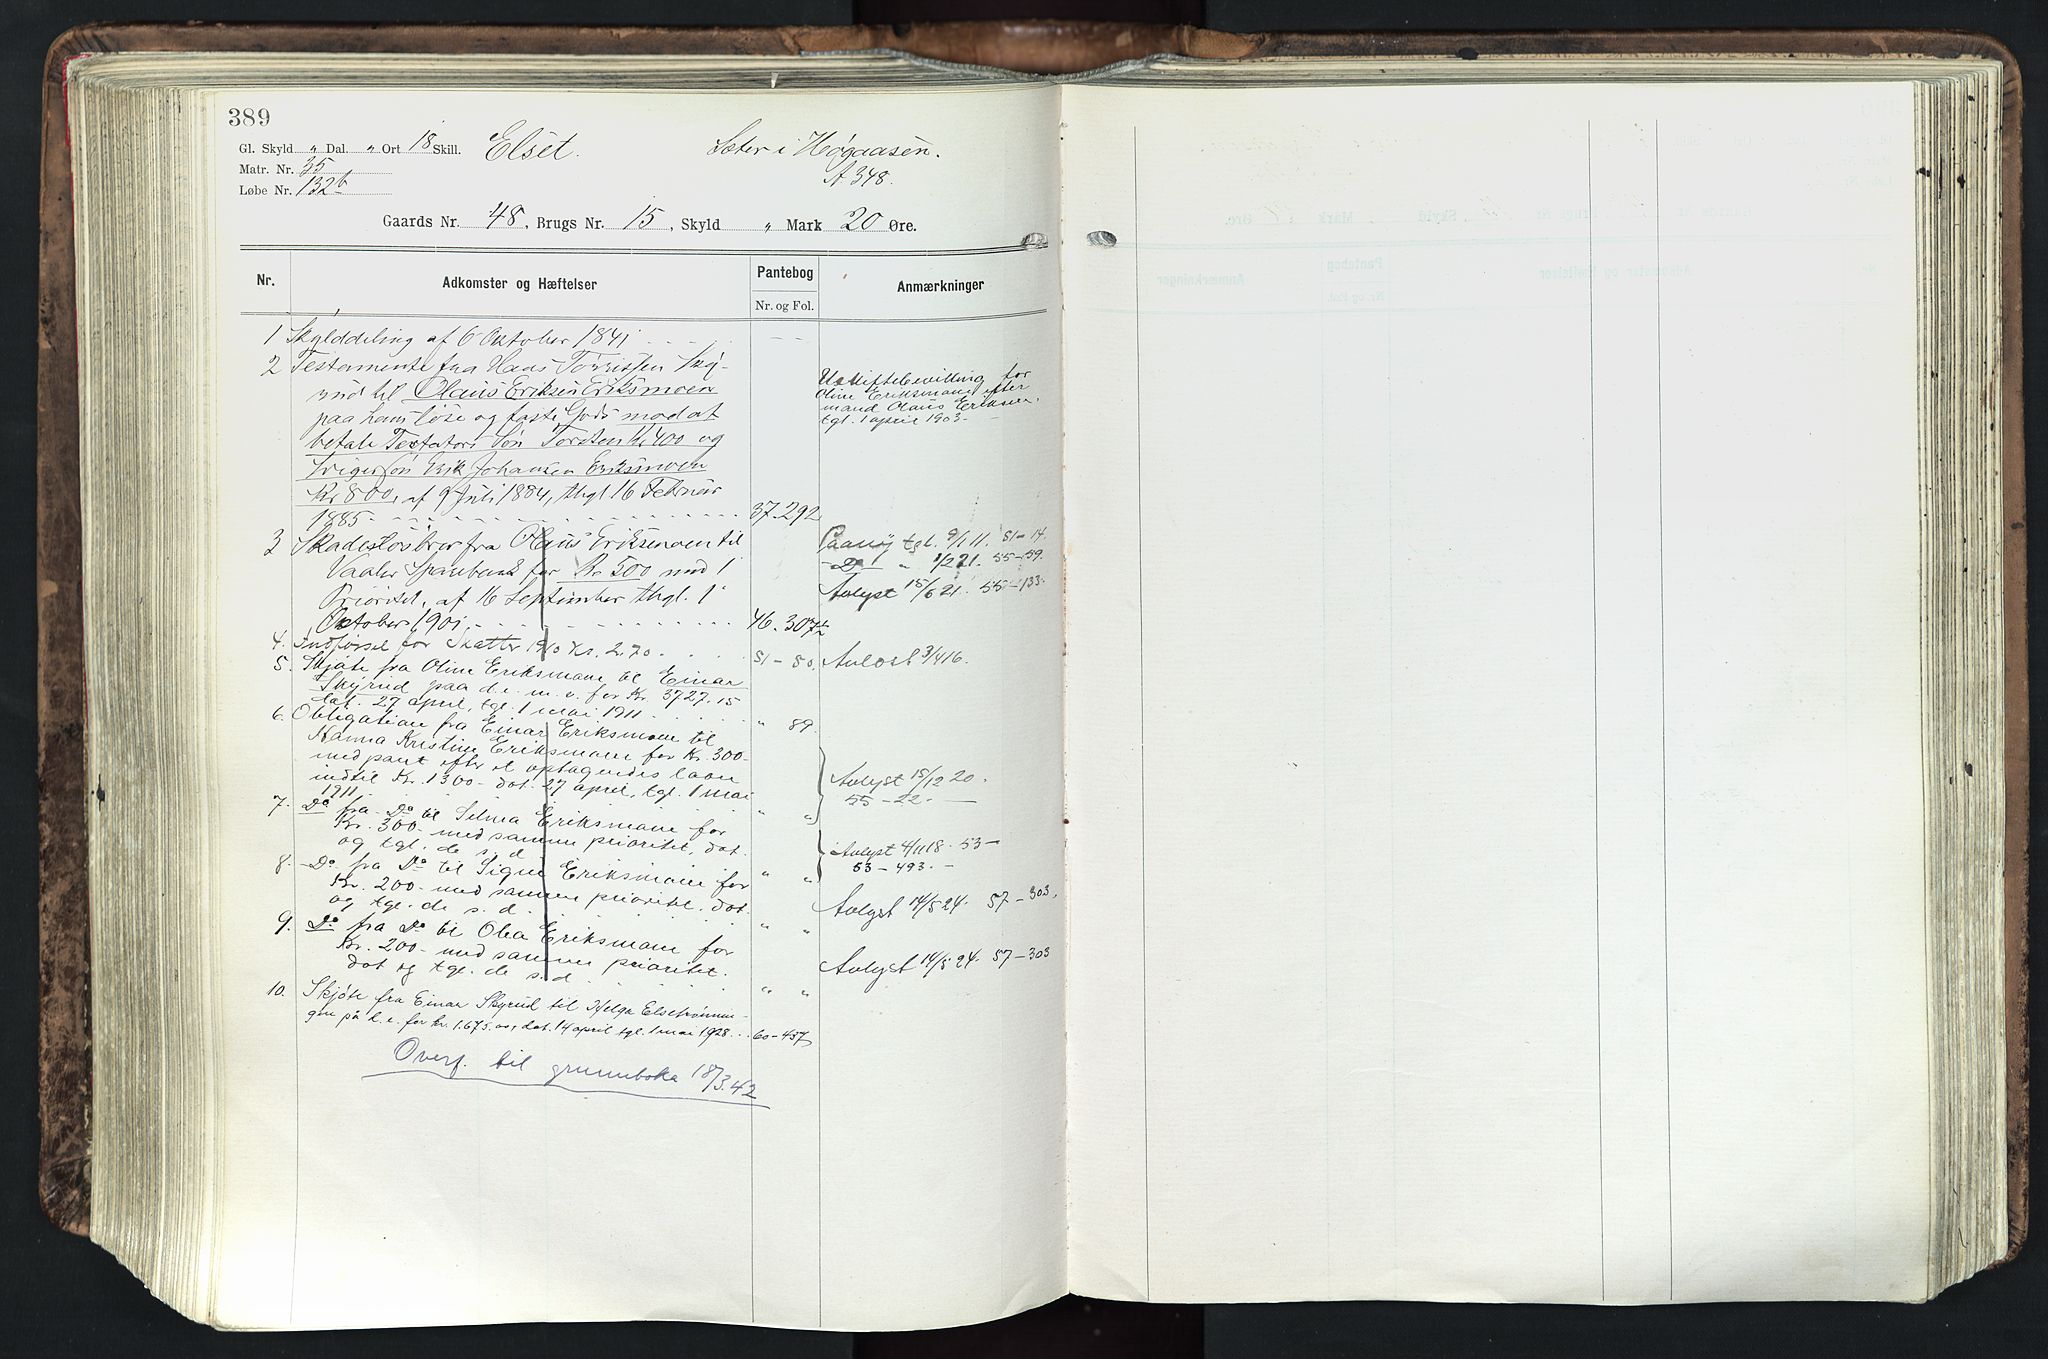 389
Gl. Skyld " Dal. " Ort 18 Skill. Elset. Sæter i Høgaasen.
Matr. Nr. 35 A 348.
Løbe Nr. 132b
Gaards Nr. 48, Brugs Nr. 15, Skyld " Mark 20 Øre.
Nr. Adkomster og Hæftelser Pantebog Anmærkninger
Nr. og Fol.
1 Skylddeling af 6 Oktober 1841
2 Testamente fra Haas Tørrissen Sky-
rud til Olaus Eriksen Eriksmoen
paa hans løse og faste Gods mod at
betale Testators Søn Torsten Kr 400 og
Svigersøn Erik Johansen Eriksmoen
Kr 800, af 9 Juli 1884, thgl 16 Februar
1885 37.292
Uskiftebevilling for
Oline Eriksmoen efter
mand Olaus Eriksen.
tgl. 1 april 1903.
3 Skadesløsbrev fra Olaus Eriksmoen til
Vaaler Sparebank for Kr 500 med 1
Prioritet, af 16 September thgl. 1
Oktober 1901 46.307
tgl. 9/1 11. 51-14.
Do " 1/2 21. 55-59.
Avlyst 15/6 21. 55-133.
4. Indførsel for Skatter 1910 Kr. 2.70. 51-50. Avløst 3/4 16.
5. Skjøte fra Oline Eriksmoen til Einar
Skyrud paa d. e. m. v. for Kr. 3727.15
dat. 27 april, tgl. 1 mai 1911 " 89.
6. Obligation fra Einar Eriksmoen til
Hanna Kristine Eriksmoen for Kr. 300-
med pant efter et optagendes laan
indtil Kr. 1300- dat. 27 april, tgl. 1 mai
1911. " "
Avlyst 15/12 20.
55-22.
7. Do fra Do til Selma Eriksmoen for
Kr. 300- med samme prioritet, dat.
og tgl. de s. d. " "
Avlyst 4/11 18. 53-
53-493.
8. Do fra Do til Signe Eriksmoen for
Kr. 200- med samme prioritet, dat.
og tgl. de s. d. " "
Avlyst 14/5 24. 57-303.
9. Do fra Do til Olea Eriksmoen for
Kr. 200- med samme prioritet.
dat og tgl. de s. d. " "
Avlyst 14/5 24. 57-303
10. Skjøte fra Einar Skyrud til Helga Elsetrønnin-
gen på d. e. for kr. 1.675.00, dat. 14 april tgl. 1 mai 1928. 60-437
Overf. til grunnboka 18/3.42